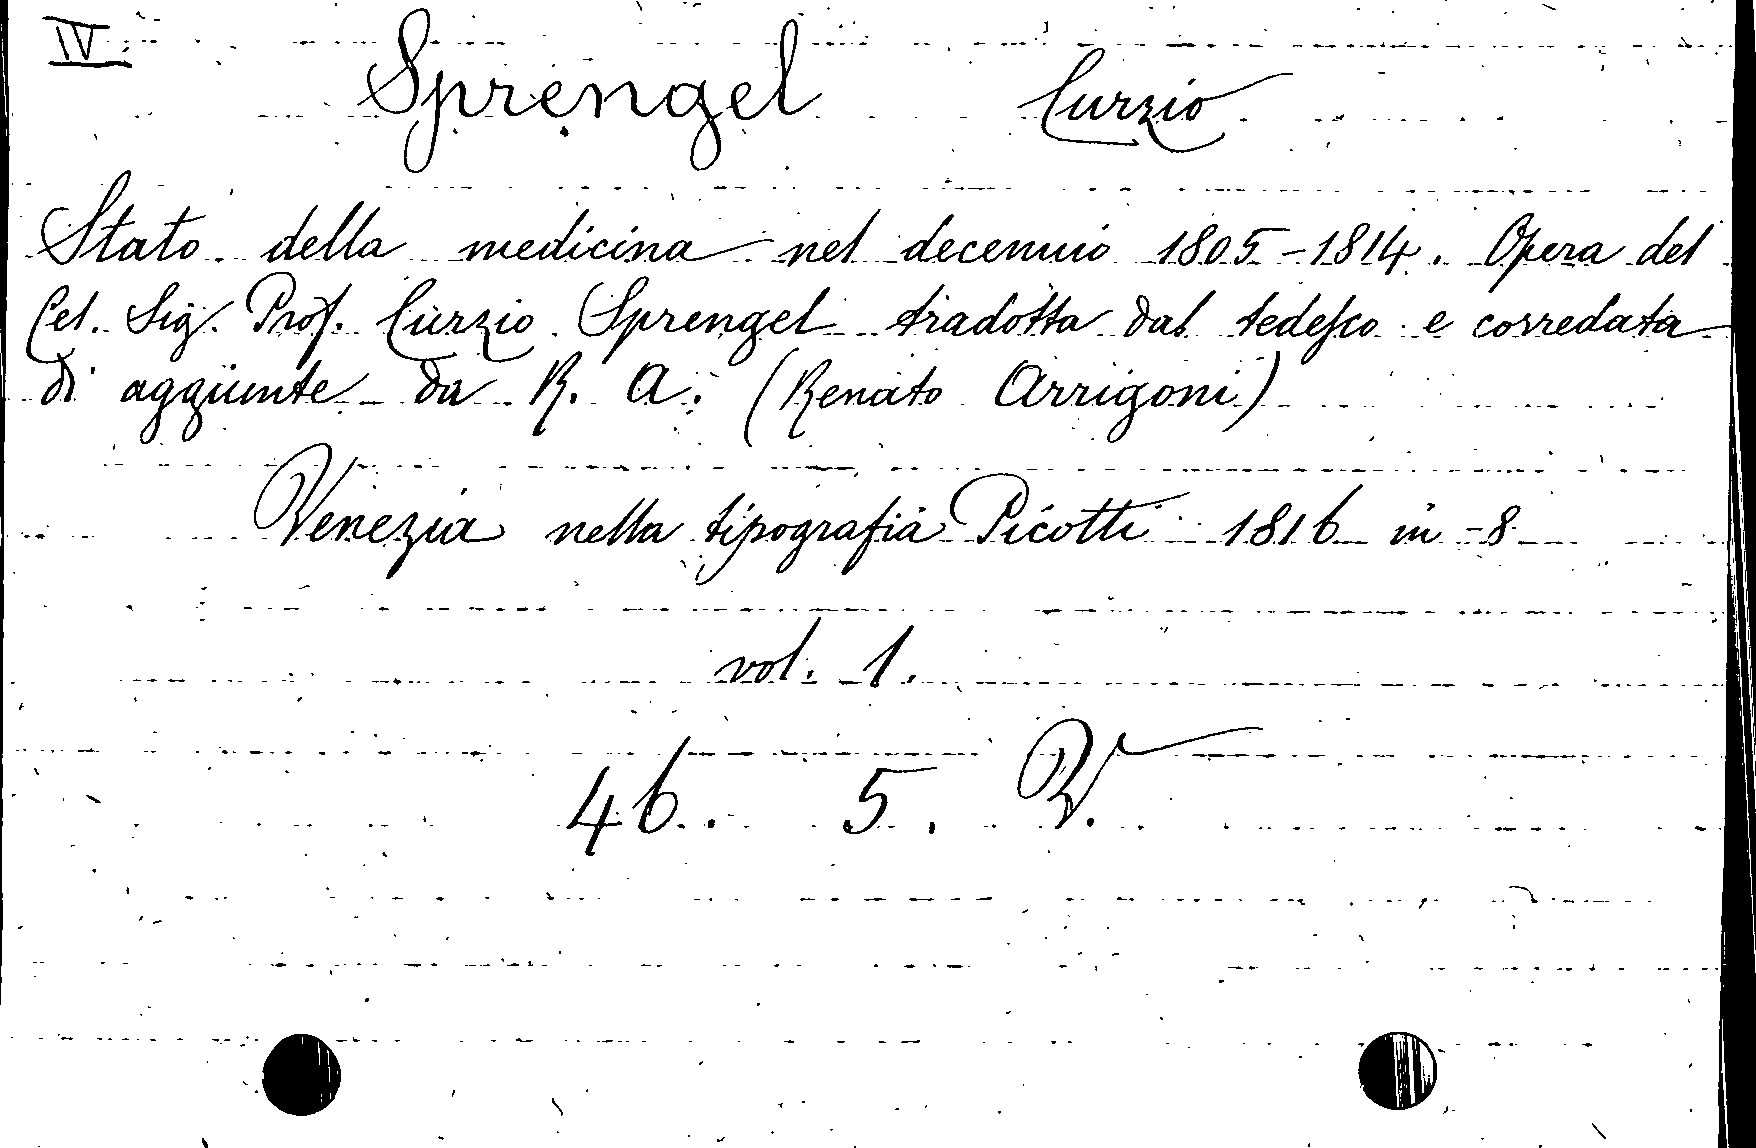 IV.
Sprengel Curzio
Stato della medicina nel decennio 1805-1814. Opera del
Cel. Sig. Prof. Curzio Sprengel tradotta dal tedesco e corredata
di aggiunte da R. A. (Renato Arrigoni)
Venezia nella tipografia Picotti 1816 in-8
vol. 1.
46. 5. V.